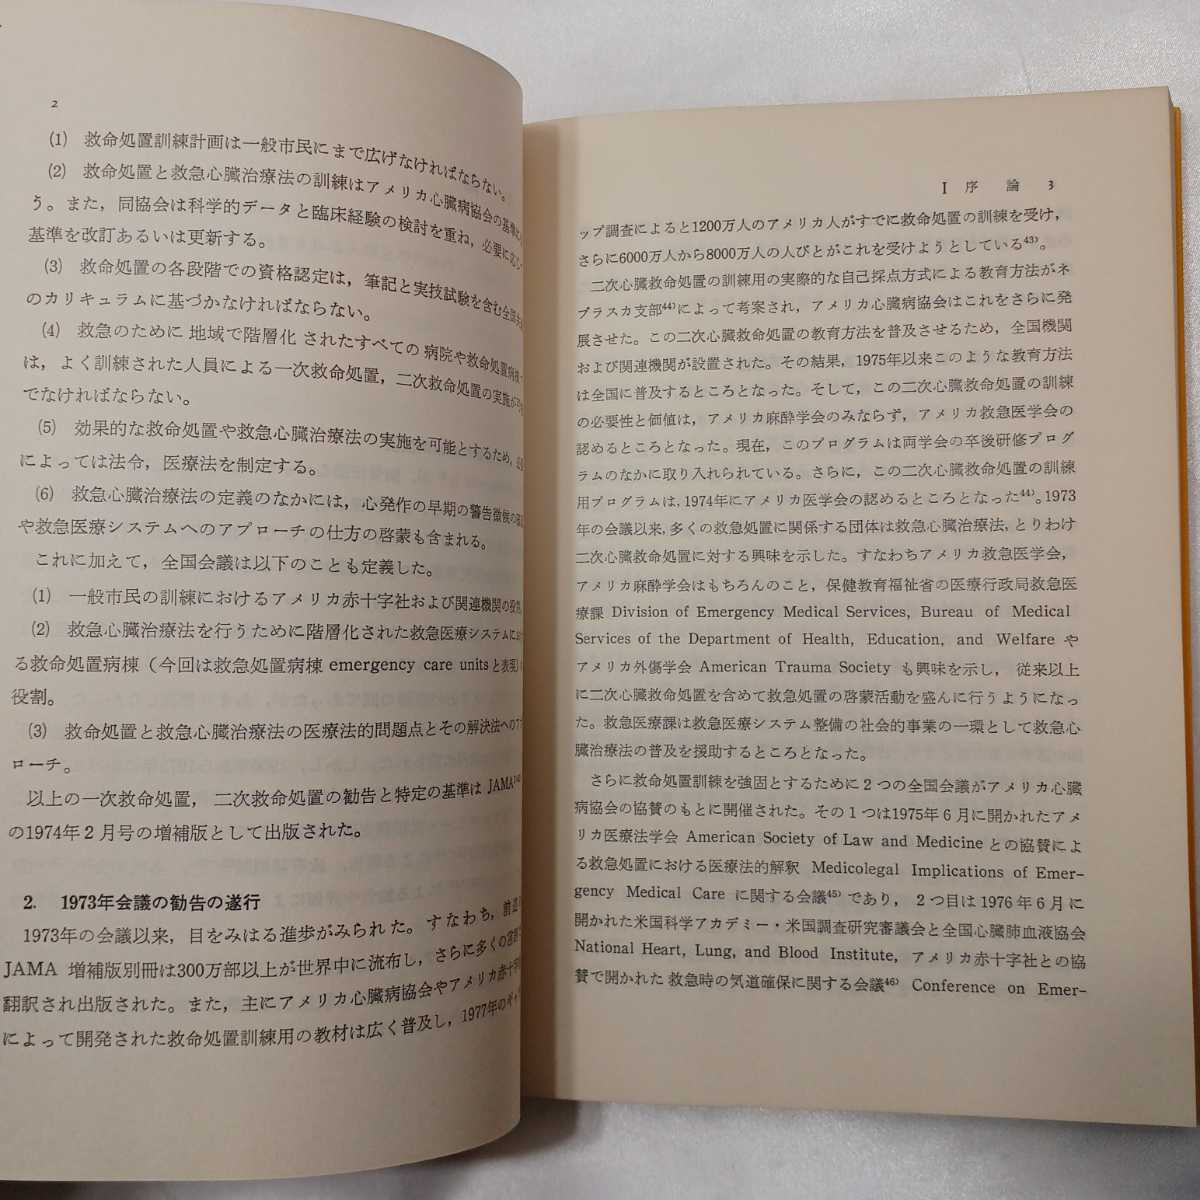 2
(1) 救命処置訓練計画は一般市民にまで広げなければならない。
(2) 救命処置と救急心臓治療法の訓練はアメリカ心臓病協会の基準に
う。また，同協会は科学的データと臨床経験の検討を重ね，必要に応じ
基準を改訂あるいは更新する。
(3) 救命処置の各段階での資格認定は，筆記と実技試験を含む全国
のカリキュラムに基づかなければならない。
(4) 救急のために地域で階層化されたすべての病院や救命処置病棟
は，よく訓練された人員による一次救命処置，二次救命処置の実施が
でなければならない。
(5) 効果的な救命処置や救急心臓治療法の実施を可能とするため，
によっては法令，医療法を制定する。
(6) 救急心臓治療法の定義のなかには，心発作の早期の警告徴候の
や救急医療システムへのアプローチの仕方の啓蒙も含まれる。
これに加えて，全国会議は以下のことも定義した。
(1) 一般市民の訓練におけるアメリカ赤十字社および関連機関の役割。
(2) 救急心臓治療法を行うために階層化された救急医療システムにお
る救命処置病棟（今回は救急処置病棟 emergency care units と表現）
役割。
(3) 救命処置と救急心臓治療法の医療法的問題点とその解決法へのア
ローチ。
以上の一次救命処置，二次救命処置の勧告と特定の基準は JAMA
の1974年2月号の増補版として出版された。
2. 1973年会議の勧告の遂行
1973年の会議以来，目をみはる進歩がみられた。すなわち，前述
JAMA 増補版別冊は300万部以上が世界中に流布し，さらに多くの言語
翻訳され出版された。また，主にアメリカ心臓病協会やアメリカ赤十字
によって開発された救命処置訓練用の教材は広く普及し，1977年のギャ
I 序 論 3
ップ調査によると1200万人のアメリカ人がすでに救命処置の訓練を受け，
さらに6000万人から8000万人の人びとがこれを受けようとしている43)。
二次心臓救命処置の訓練用の実際的な自己採点方式による教育方法がネ
ブラスカ支部44)によって考案され，アメリカ心臓病協会はこれをさらに発
展させた。この二次心臓救命処置の教育方法を普及させるため，全国機関
および関連機関が設置された。その結果，1975年以来このような教育方法
は全国に普及するところとなった。そして，この二次心臓救命処置の訓練
の必要性と価値は，アメリカ麻酔学会のみならず，アメリカ救急医学会の
認めるところとなった。現在，このプログラムは両学会の卒後研修プログ
ラムのなかに取り入れられている。さらに，この二次心臓救命処置の訓練
用プログラムは，1974年にアメリカ医学会の認めるところとなった44)。1973
年の会議以来，多くの救急処置に関係する団体は救急心臓治療法，とりわけ
二次心臓救命処置に対する興味を示した。すなわちアメリカ救急医学会，
アメリカ麻酔学会はもちろんのこと，保健教育福祉省の医療行政局救急医
療課 Division of Emergency Medical Services, Bureau of Medical
Services of the Department of Health, Education, and Welfare や
アメリカ外傷学会 American Trauma Society も興味を示し，従来以上
に二次心臓救命処置を含めて救急処置の啓蒙活動を盛んに行うようになっ
た。救急医療課は救急医療システム整備の社会的事業の一環として救急心
臓治療法の普及を援助するところとなった。
さらに救命処置訓練を強固とするために2つの全国会議がアメリカ心臓
病協会の協賛のもとに開催された。その1つは1975年6月に開かれたアメ
リカ医療法学会 American Society of Law and Medicine との協賛によ
る救急処置における医療法的解釈 Medicolegal Implications of Emer-
gency Medical Care に関する会議45)であり，2つ目は1976年6月に
開かれた米国科学アカデミー・米国調査研究審議会と全国心臓肺血液協会
National Heart, Lung, and Blood Institute，アメリカ赤十字社との協
賛で開かれた救急時の気道確保に関する会議46) Conference on Emer-